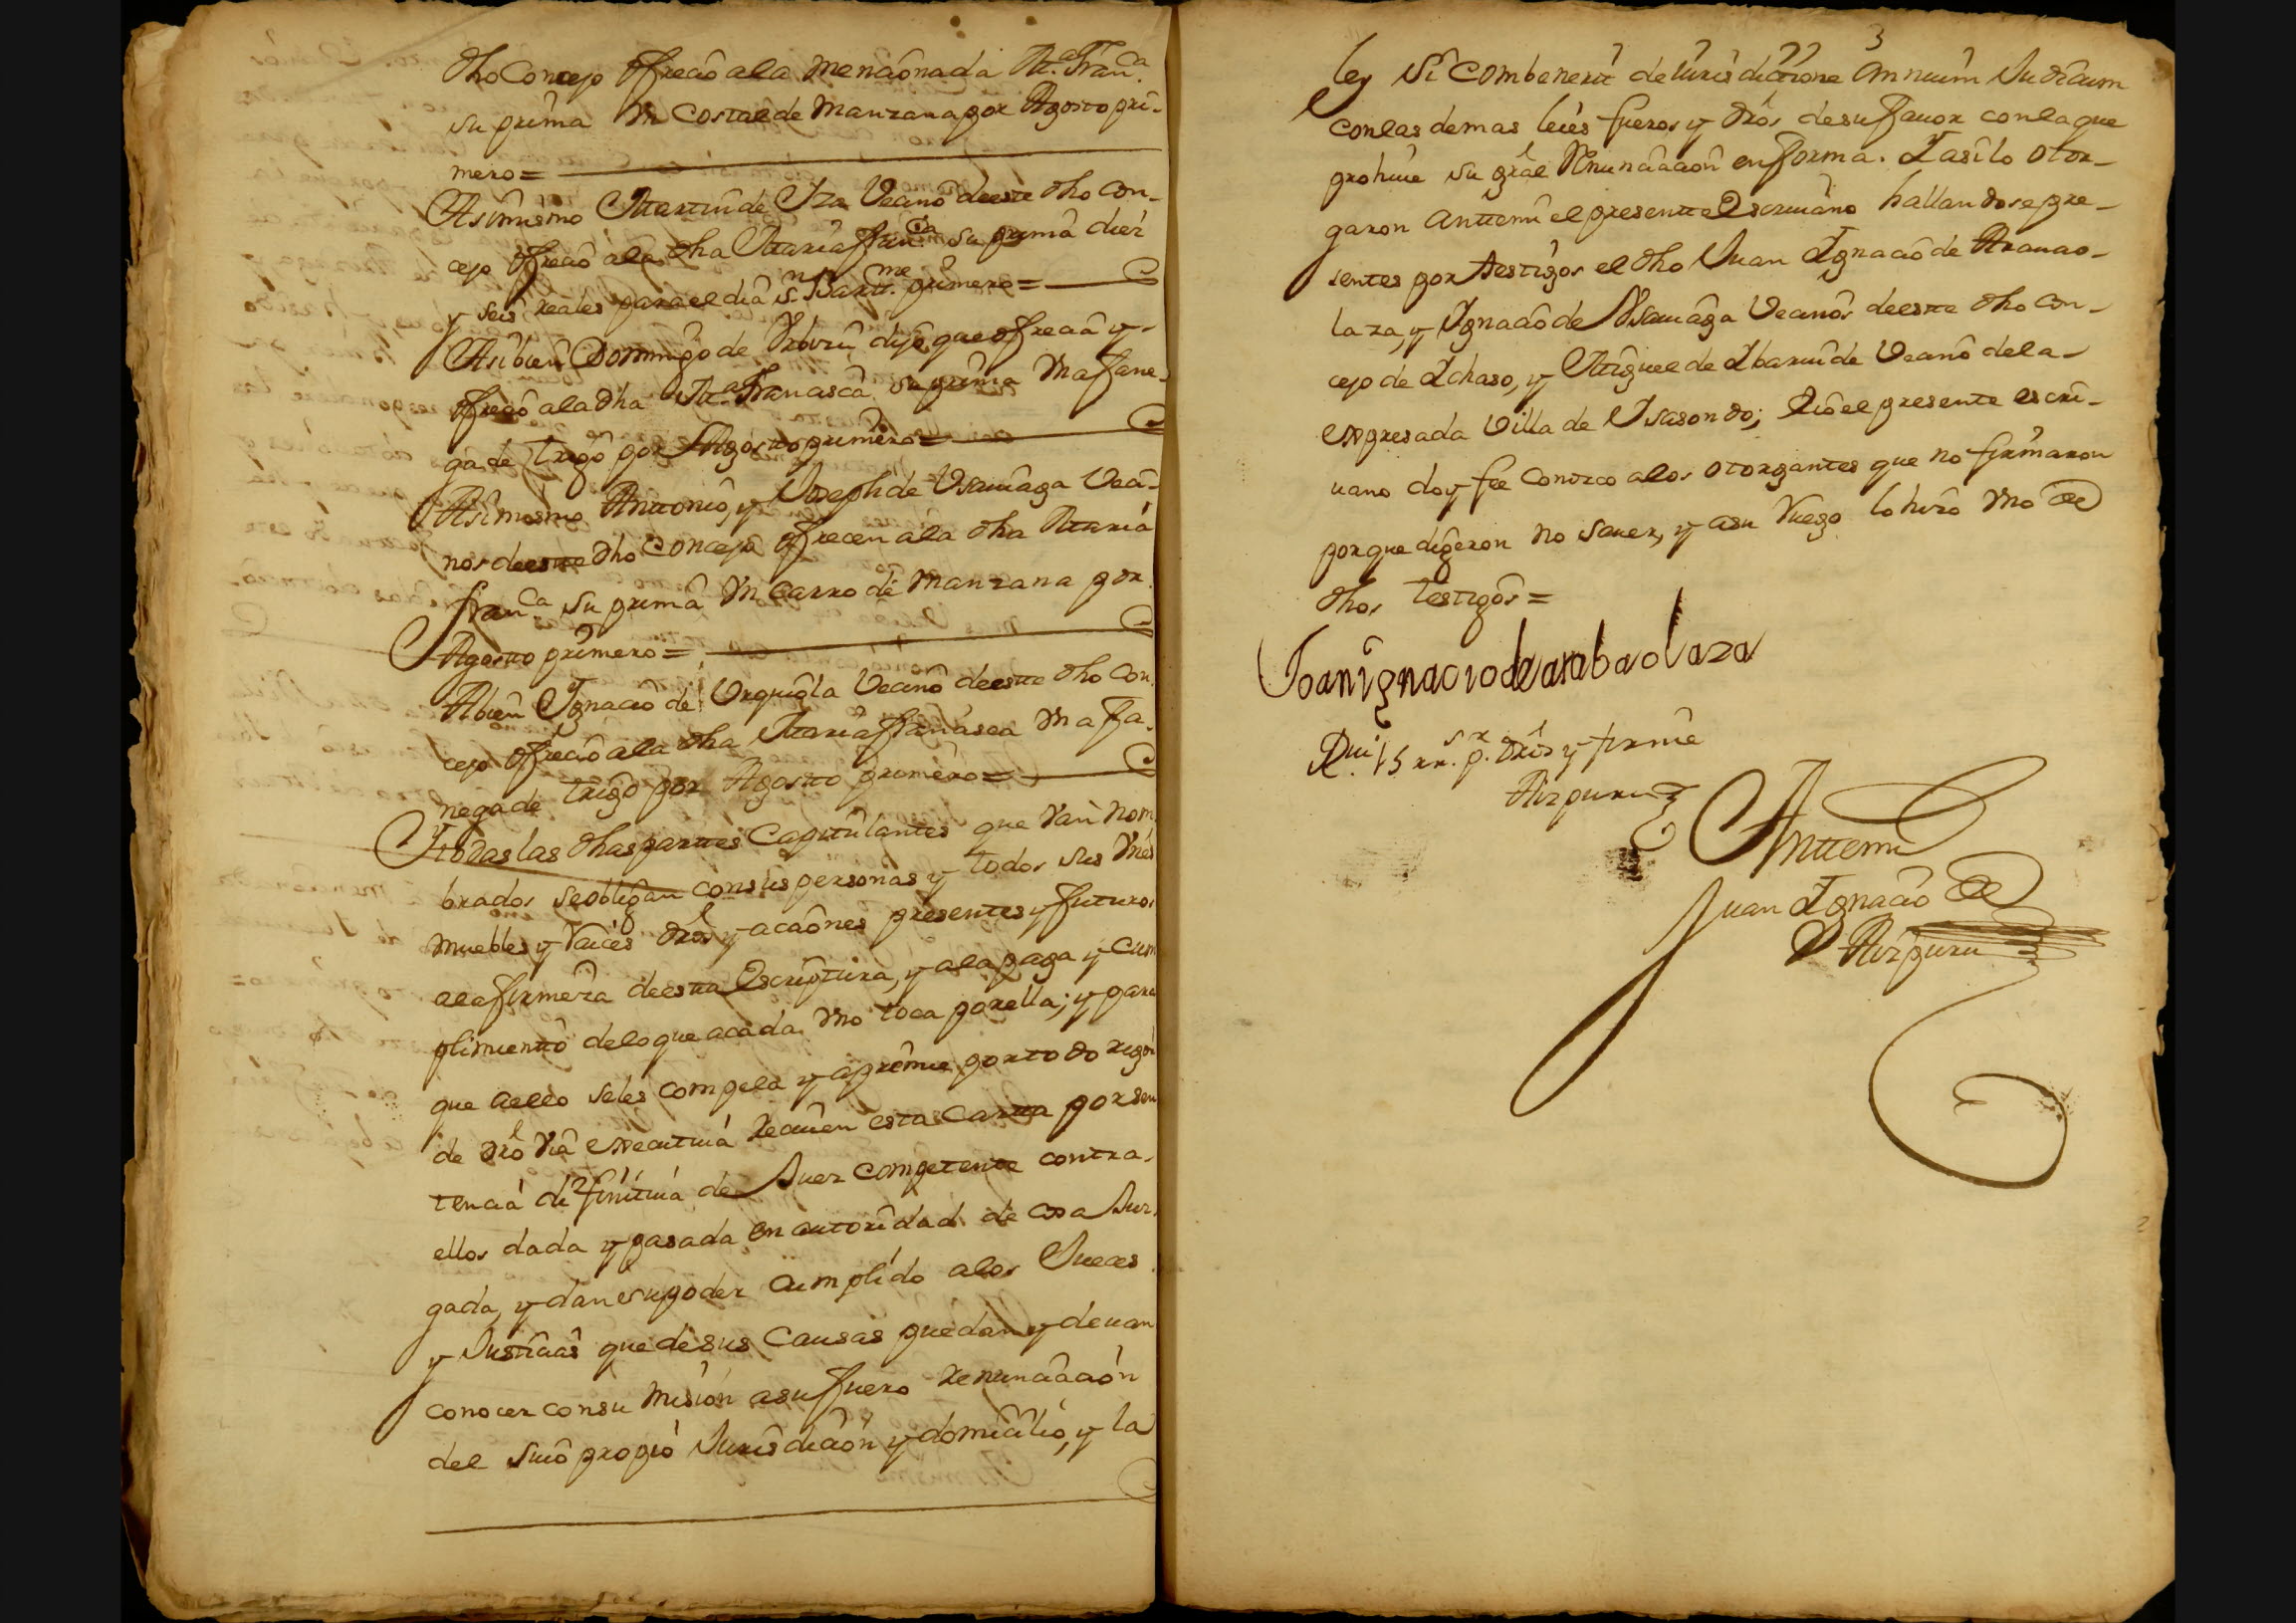 dho Concejo ofreció a la mencionada Ma. Franca.
su prima un costal de Manzana por Agosto pri-
mero =
Asimismo Martin de Iza Vecino de este dho Con-
cejo ofreció a la dha Maria Franca. su prima diez
y seis reales para el dia Sn. Bartme. primero =
Asibien Domingo de dijo que ofrecia y
ofreció a la dha Ma. Francisca su prima Una fane-
ga de trigo por Agosto primero =
Asimesmo Anttonio, y Joseph de Usauiaga Veci-
nos de estte dho Concejo ofrecen a la dha Maria
Franca. su prima Un Carro de Manzana por
Agostto primero =
Abien Ygnacio de Urquiola Vecino de estte dho Con-
cejo ofreció a la dha Maria Francisca Una fa-
nega de trigo por Agostto primero =
Y todas las dhas parttes Capitulantes que Van nom-
brados se obligan con sus personas y todos sus Vnes
muebles y Raices dros y acciones presentes y futuros
a la firmeza de estta Escriptura, y a la paga y cum
plimientto de lo que a cada Vno toca por ella; y para
que a ello se les compela y apremie por todo rigor
de dro Via executiua reciuen esta Cartta por sen
tencia difinitiua de Juez competente contra
ellos dada y pasada en autoridad de cosa Juz
gada, y dan su poder cumplido a los Jueces
y Justicias que de sus Causas puedan y deuan
conocer con su misión a su fuero renunciación
del suio propio Jurisdicion y domicilio, y la
3
ley Si Combenerit de Jurisdictione Omnium Judicum
con las demas leies fueros y dros de su fauor con la que
prohiue su gral Renunciacion en forma. Y asi lo otor-
garon anttemi el presentte Escriuano hallandose pre-
sentes por testigos el dho Juan Ygnacio de Arauao-
laza, y Ygnacio de Usauiaga Vecinos de estte dho Con-
cejo de Ychaso, y Miguel de Ybaruide Vecino de la
expresada Villa de Ysasondo; e io el presente escri-
uano doy fee conozco a los otorgantes que no firmaron
porque digeron no sauer, y a su Ruego lo hizo Vno de
dhos testigos =
Joan ignacio de arabaolaza
Rui. 15 rr. s. pr. dros y firmé
Aizpuru
Anttemi
Juan Ygnacio de
Aizpuru